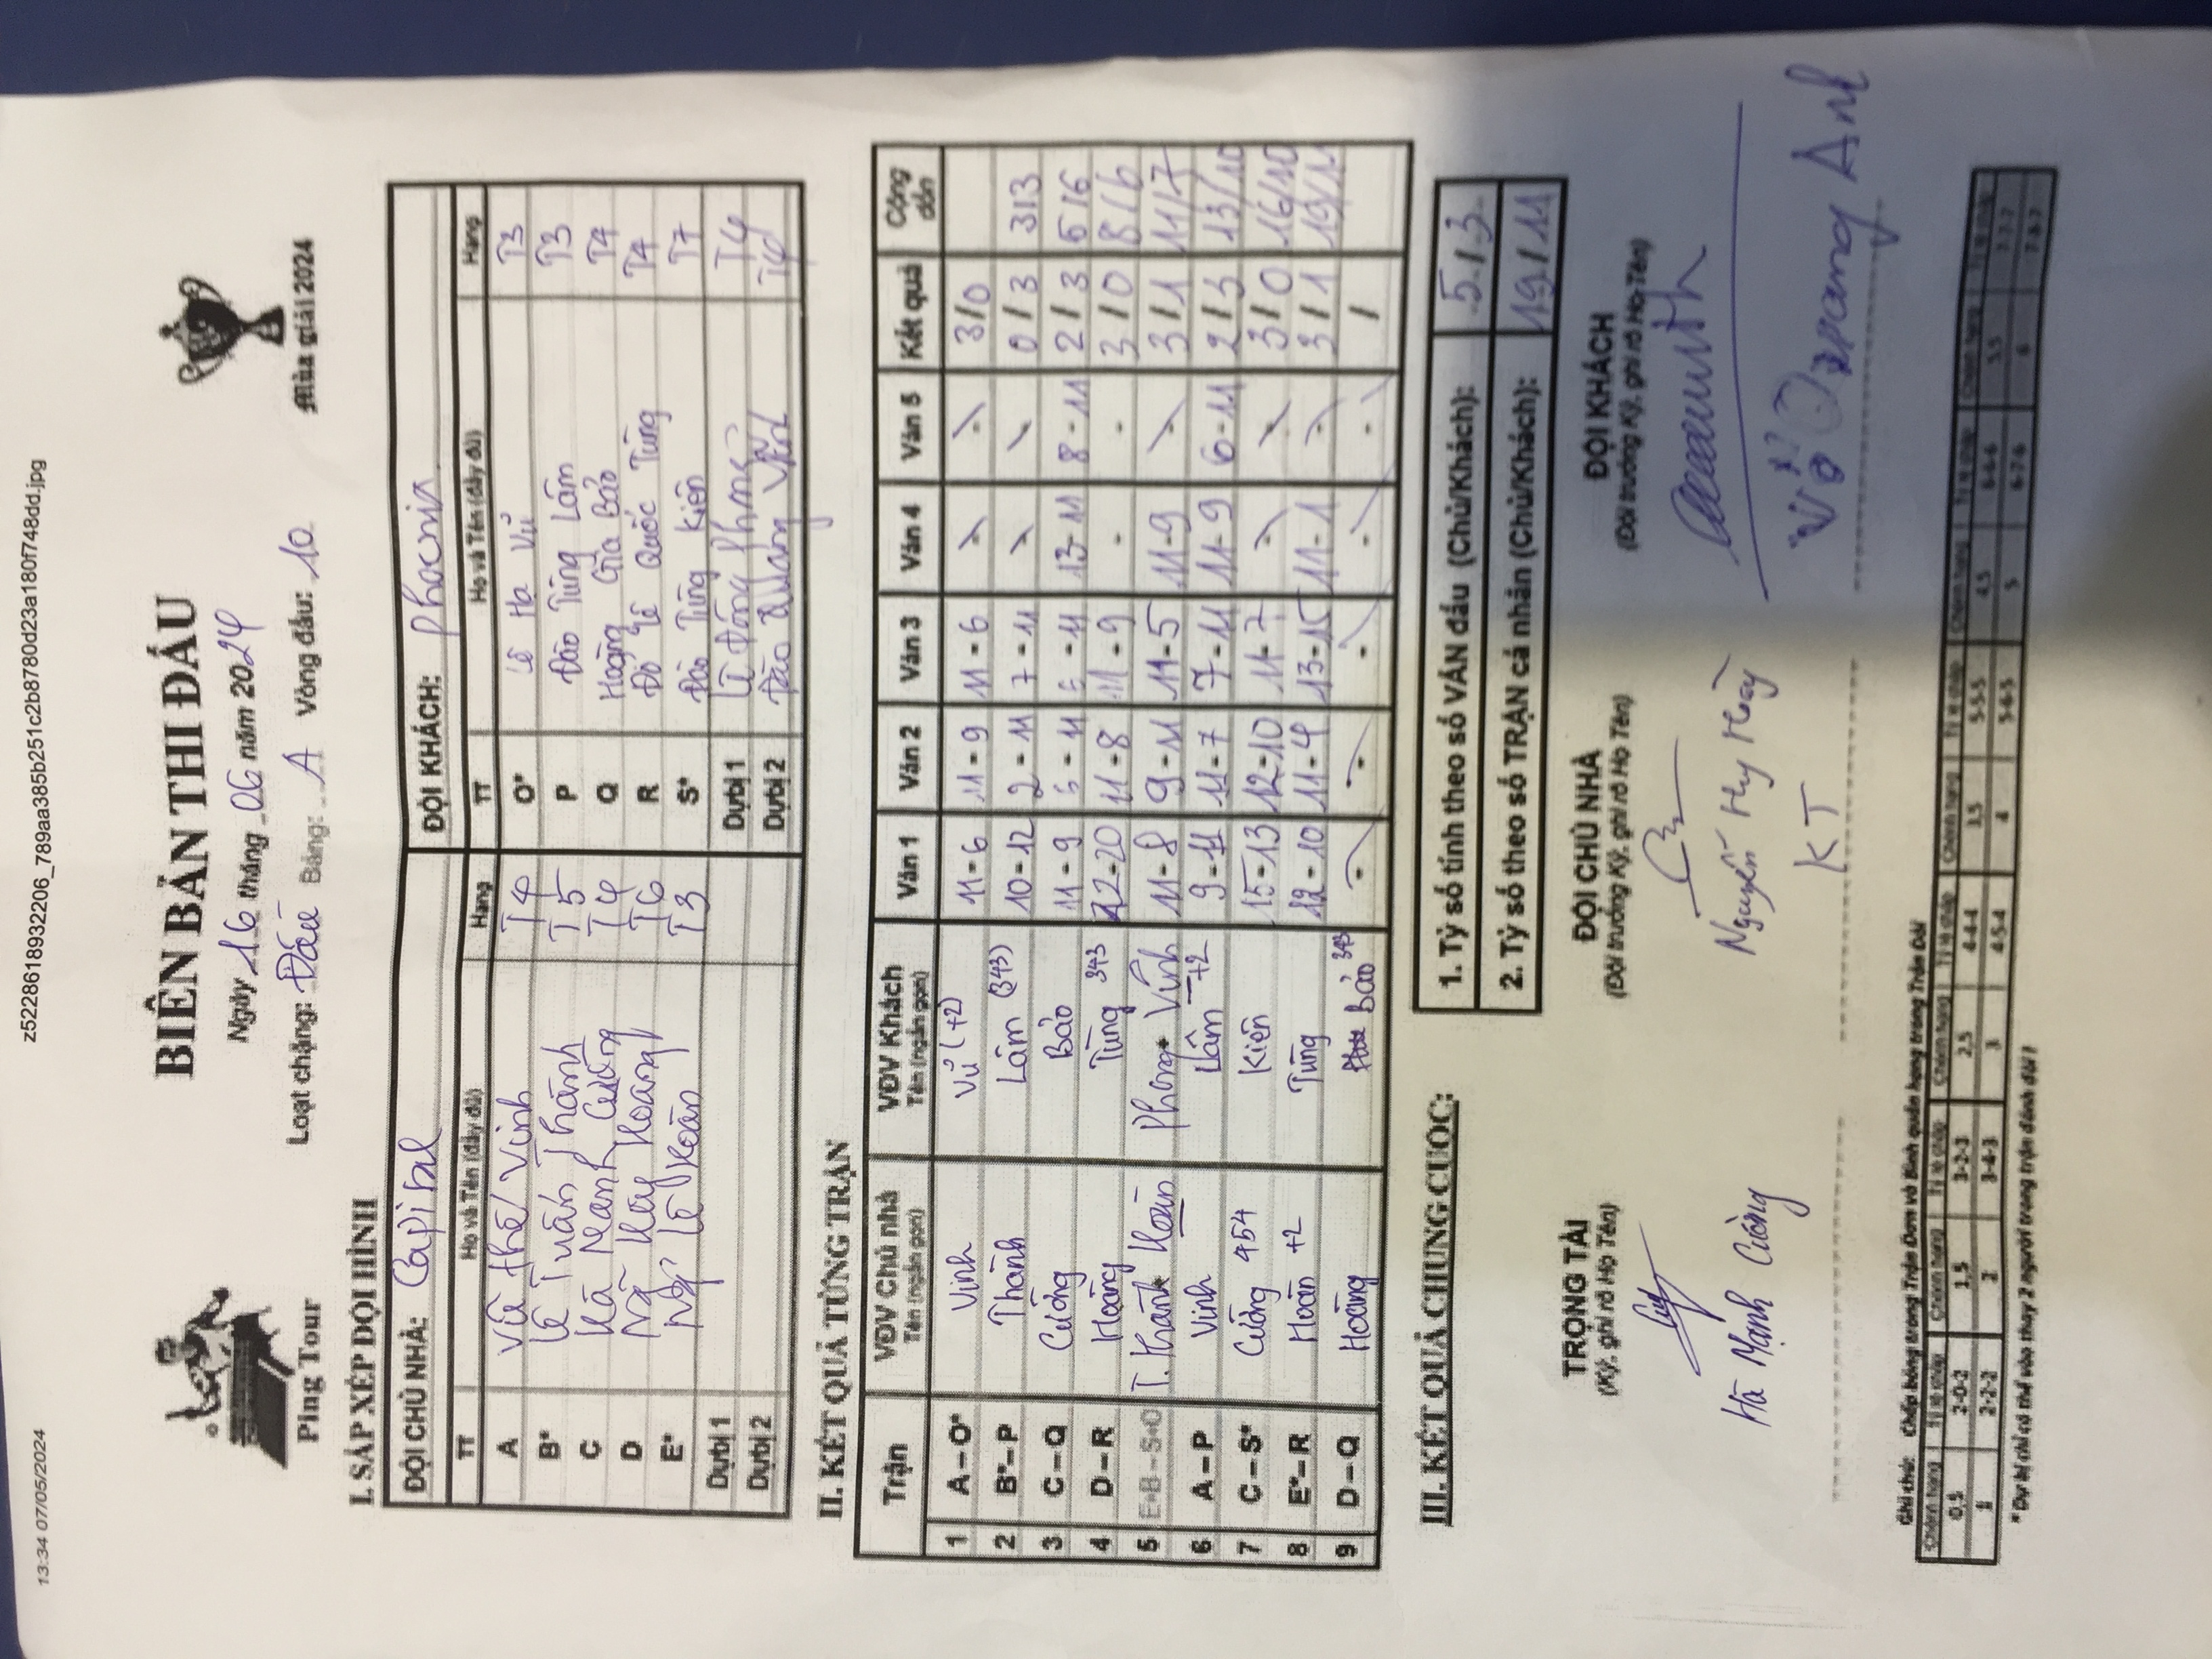 13:34 07/05/2024
z5228618932206_789aa385b251c2b8780d23a180f748dd.jpg
Ping Tour
BIÊN BẢN THI ĐẤU
Ngày 16 tháng 06 năm 2024
Loạt chặng: Đấu Bảng: A Vòng đấu: 10
Mùa giải 2024
I. SẮP XẾP ĐỘI HÌNH
ĐỘI CHỦ NHÀ: Capital ĐỘI KHÁCH: Phoenix
TT Họ và Tên (đầy đủ) Hạng TT Họ và Tên (đầy đủ) Hạng
A Vũ Thế Vinh T4 O* Lê Hạ Vũ T3
B* Lê Tuấn Thành T5 P Đào Tùng Lâm T3
C Hà Mạnh Cường T4 Q Hoàng Gia Bảo T4
D Ng̃ Huy Hoàng T6 R Đỗ Lê Quốc Tùng T4
E* Ng̃ Lê Hoàn T3 S* Đào Tùng Kiên T7
Dự bị 1 Dự bị 1 Lê Đông Phong T4
Dự bị 2 Dự bị 2 Đào Quang Vĩnh T4
II. KẾT QUẢ TỪNG TRẬN
Trận VĐV Chủ nhà Tên (ngắn gọn) VĐV Khách Tên (ngắn gọn) Ván 1 Ván 2 Ván 3 Ván 4 Ván 5 Kết quả Cộng dồn
1 A – O* Vinh Vũ (+2) 11 - 6 11 - 9 11 - 6 - - 3 / 0
2 B* – P Thành Lâm (343) 10 - 12 2 - 11 7 - 11 - - 0 / 3 3/3
3 C – Q Cường Bảo 11 - 9 - 11 - 11 13 - 11 8 - 11 2 / 3 5/6
4 D – R Hoàng Tùng 343 22-20 11 - 8 11 - 9 - - 3 / 0 8/6
5 E+B – S+O T. Thành Hoàn Phong Vĩnh 11 - 8 9 - 11 11 - 5 11 - 9 - 3 / 1 11/7
6 A – P Vinh Lâm +2 9 - 11 11 - 7 7 - 11 11 - 9 6 - 11 2 / 3 13/10
7 C – S* Cường 454 Kiên 15-13 12-10 11 - 7 - - 3 / 0 16/10
8 E* – R Hoàn +2 Tùng 12 - 10 11 - 4 13-15 11 - 1 - 3 / 1 19/11
9 D – Q Hoàng Bảo 343 - - - - - /
III. KẾT QUẢ CHUNG CUỘC:
1. Tỷ số tính theo số VÁN đấu (Chủ/Khách): 5 / 3
2. Tỷ số theo số TRẬN cá nhân (Chủ/Khách): 19 / 11
TRỌNG TÀI ĐỘI CHỦ NHÀ ĐỘI KHÁCH
(Ký, ghi rõ Họ Tên) (Đội trưởng Ký, ghi rõ Họ Tên) (Đội trưởng Ký, ghi rõ Họ Tên)
Hà Mạnh Cường Nguyễn Huy Hoàng
KT
Ghi chú: Chấp bóng trong Trận Đơn và Bình quân hạng trong Trận Đôi
Chênh hạng Tỷ lệ chấp Chênh hạng Tỷ lệ chấp Chênh hạng Tỷ lệ chấp Chênh hạng Tỷ lệ chấp Chênh hạng Tỷ lệ chấp Chênh hạng Tỷ lệ chấp
0,5 2-0-2 1,5 3-2-3 2,5 4-4-4 3,5 5-5-5 4,5 6-6-6 5,5 7-7-7
1 2-2-2 2 3-4-3 3 4-5-4 4 5-6-5 5 6-7-6 6 7-8-7
* Dự bị chỉ có thể vào thay 2 người trong trận đánh đôi !